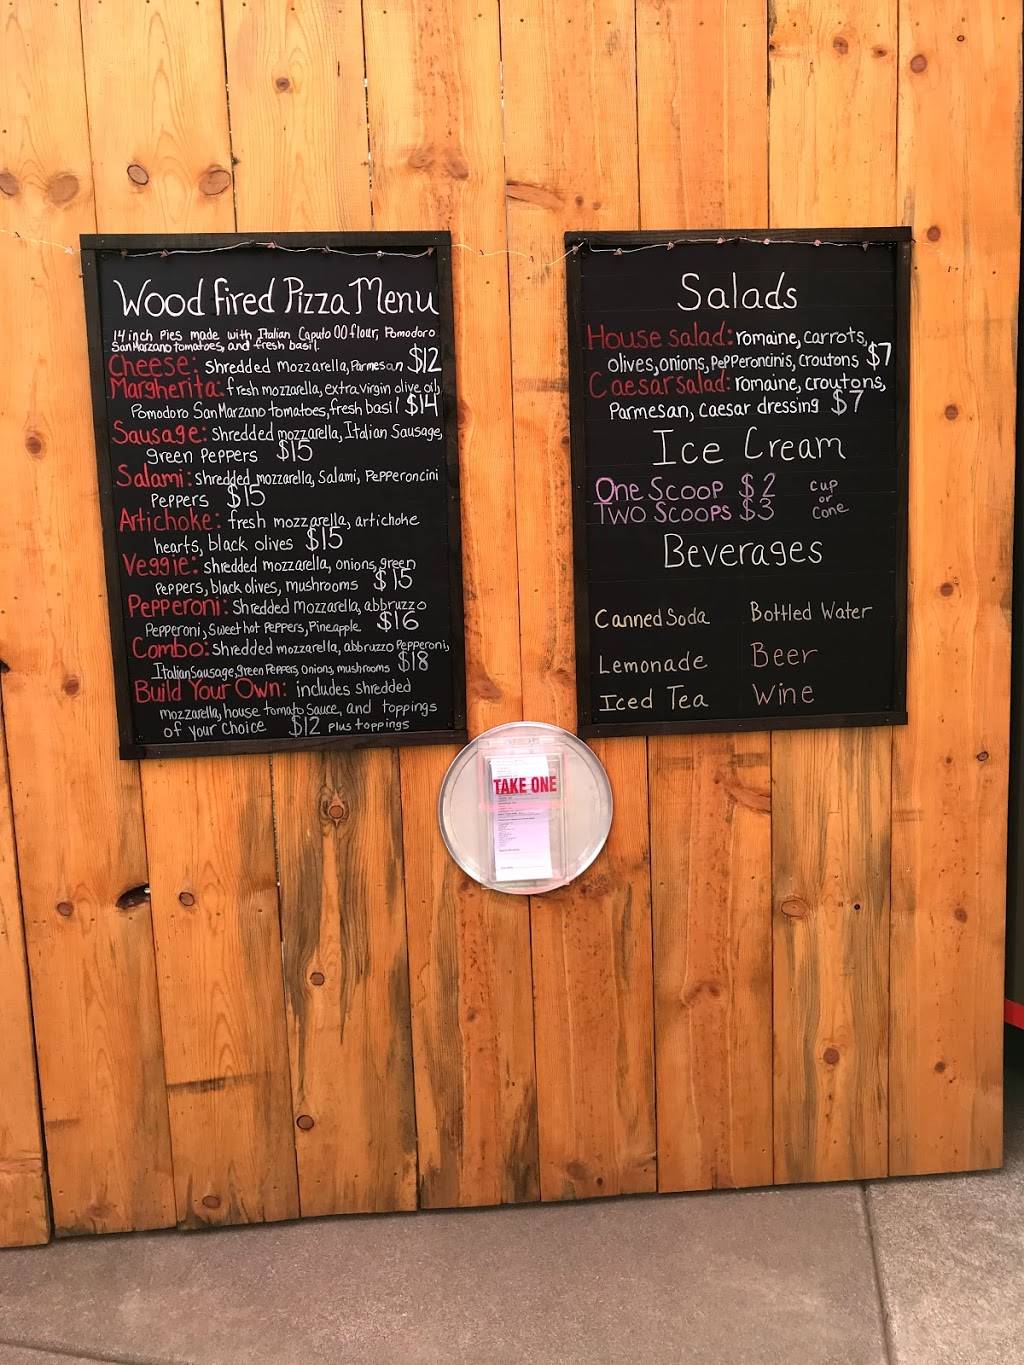 Wood Fired Pizza Menu
14 inch Pies made with Italian Caputo 00 flour, Pomodoro
San Marzano tomatoes, and fresh basil.
Cheese: Shredded Mozzarella, Parmesan $12
Margherita: fresh mozzarella, extra virgin olive oil,
Pomodoro San Marzano tomatoes, fresh basil $14
Sausage: Shredded mozzarella, Italian Sausage,
green Peppers $15
Salami: Shredded mozzarella, Salami, Pepperoncini
Peppers $15
Artichoke: fresh mozzarella, artichoke
hearts, black olives $15
Veggie: shredded mozzarella, onions, green
Peppers, black olives, mushrooms $15
Pepperoni: Shredded Mozzarella, abbruzzo
Pepperoni, Sweet hot Peppers, Pineapple $16
Combo: Shredded mozzarella, abbruzzo Pepperoni,
Italian Sausage, green Peppers, onions, mushrooms $18
Build Your Own: includes shredded
mozzarella, house tomato sauce, and toppings
of your choice $12 plus toppings
Salads
House salad: romaine, carrots,
olives, onions, PepPeroncinis, Croutons $7
Caesar salad: romaine, croutons,
Parmesan, caesar dressing $7
Ice Cream
One Scoop $2 cup
or
Two Scoops $3 cone
Beverages
Canned Soda Bottled Water
Lemonade Beer
Iced Tea Wine
TAKE ONE